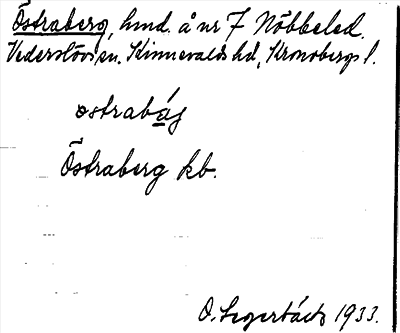 Östraberg, hmd. å nr 7 Nöbbeled.
Vederslövs sn. Kinnevalds hd, Kronobergs l.
ostrabáj
Östraberg kb.
O. 1933.